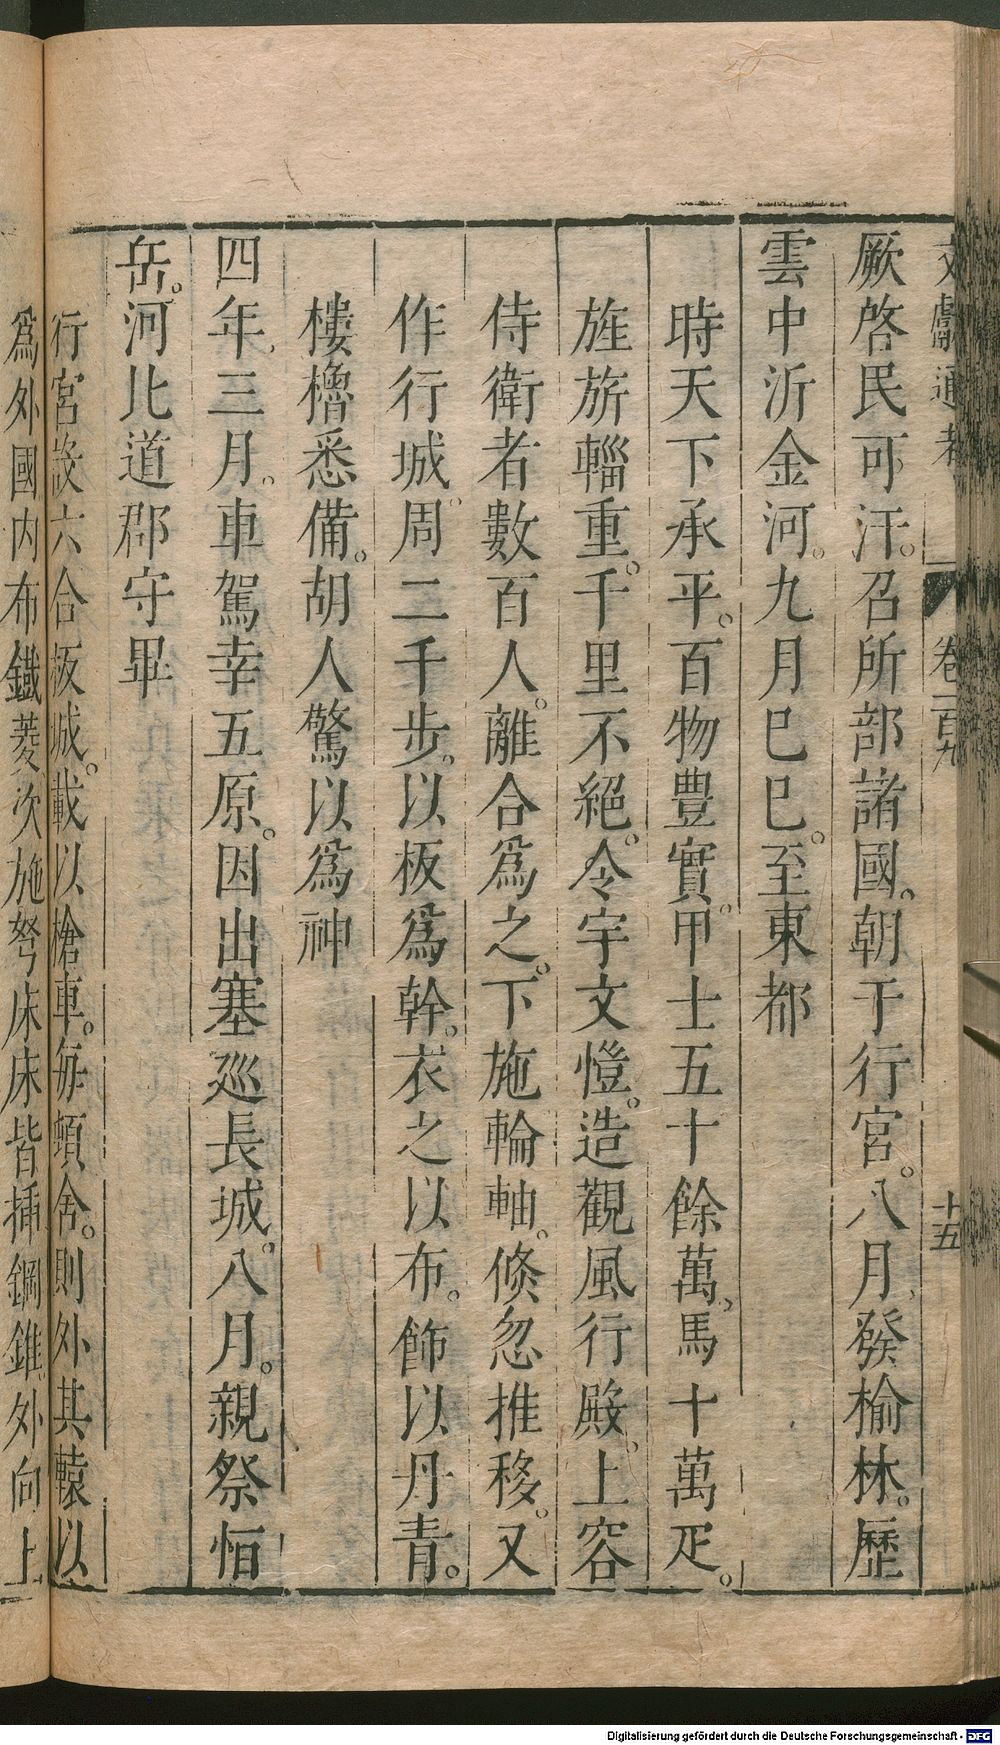 文獻通考 卷一百九 十五
厥啓民可汗。召所部諸國。朝于行宮。八月、發榆林。歷
雲中泝金河。九月巳巳。至東都
時天下承平。百物豐實。甲士五十餘萬、馬十萬疋。
旌旂輜重。千里不絕。令宇文愷。造觀風行殿、上容
侍衛者數百人。離合爲之。下施輪軸。倐忽推移。又
作行城。周二千步。以板爲幹。衣之以布。飾以丹青。
樓櫓悉備。胡人驚以爲神
四年、三月。車駕幸五原。因出塞廵長城。八月。親祭恒
岳。河北道郡守畢
行宮設六合板城。載以槍車。每頓舍。則外其轅以
爲外國内布鐵菱次施弩床床皆挿鋼錐外向上
Digitalisierung gefördert durch die Deutsche Forschungsgemeinschaft - DFG